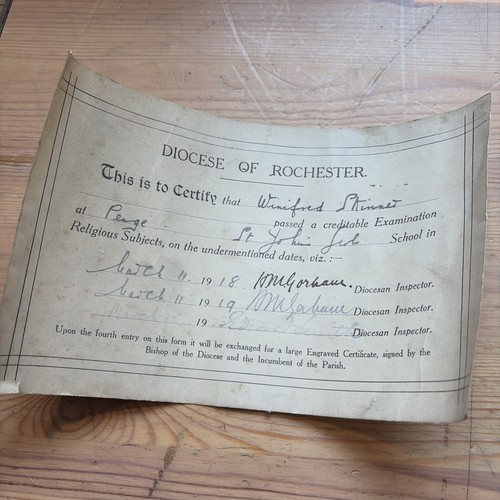 DIOCESE OF ROCHESTER.
This is to Certify that Winifred Skinner
at Penge passed a creditable Examination
St John's School in
Religious Subjects, on the undermentioned dates, viz.:—
March 11 1918. Diocesan Inspector.
March 11 1919 Diocesan Inspector.
19 Diocesan Inspector.
Upon the fourth entry on this form it will be exchanged for a large Engraved Certificate, signed by the
Bishop of the Diocese and the Incumbent of the Parish.